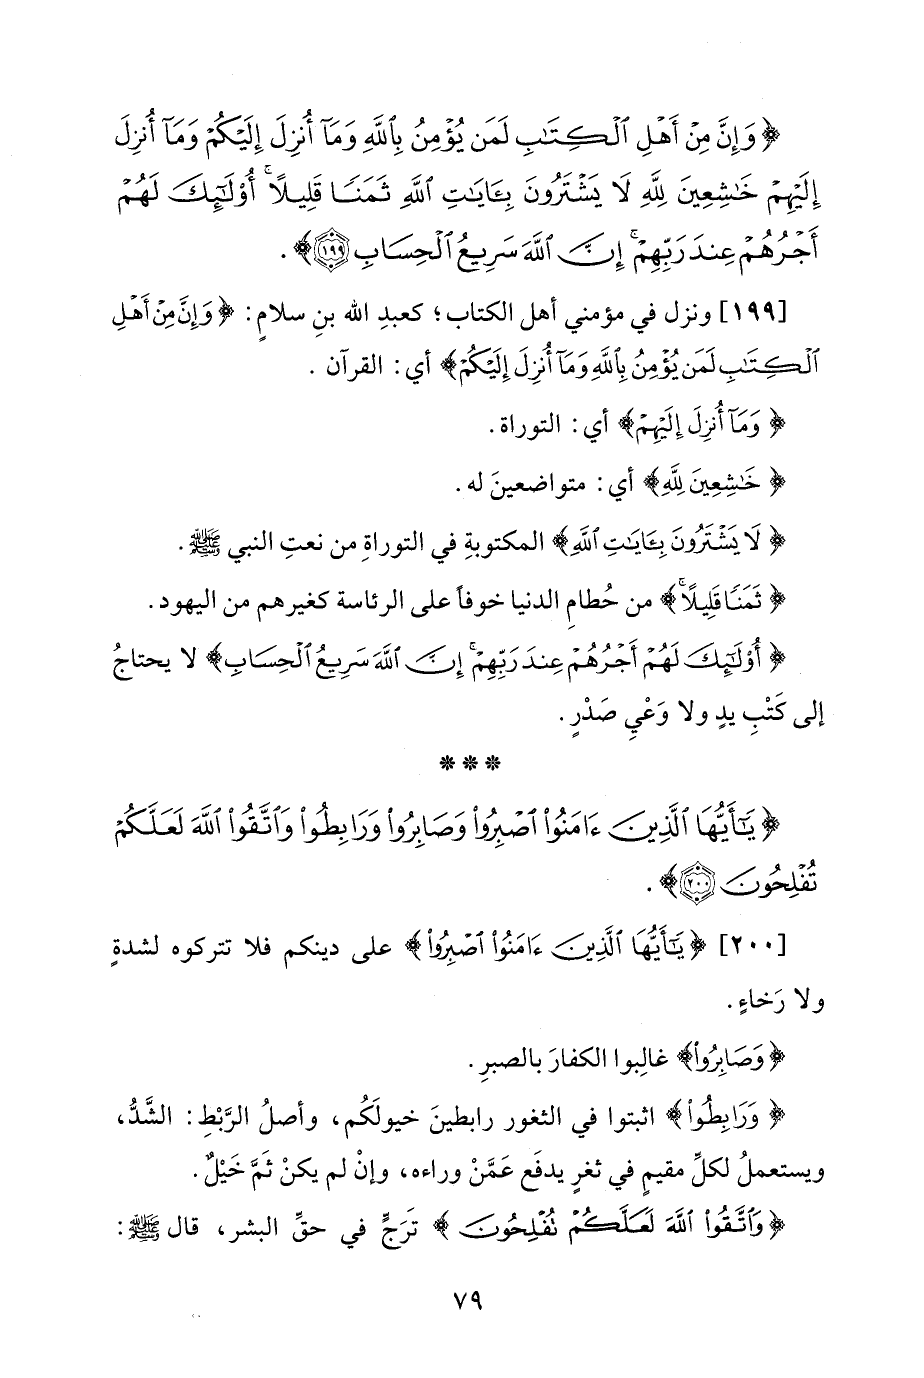 ﴿ وَإِنَّ مِنْ أَهْلِ ٱلْكِتَٰبِ لَمَن يُؤْمِنُ بِٱللَّهِ وَمَآ أُنزِلَ إِلَيْكُمْ وَمَآ أُنزِلَ
إِلَيْهِمْ خَٰشِعِينَ لِلَّهِ لَا يَشْتَرُونَ بِـَٔايَٰتِ ٱللَّهِ ثَمَنًا قَلِيلًا ۗ أُوْلَٰٓئِكَ لَهُمْ
أَجْرُهُمْ عِندَ رَبِّهِمْ ۗ إِنَّ ٱللَّهَ سَرِيعُ ٱلْحِسَابِ ١٩٩ ﴾ .
[١٩٩] ونزل في مؤمني أهل الكتاب؛ كعبدِ الله بنِ سلامٍ: ﴿ وَإِنَّ مِنْ أَهْلِ
ٱلْكِتَٰبِ لَمَن يُؤْمِنُ بِٱللَّهِ وَمَآ أُنزِلَ إِلَيْكُمْ﴾ أي: القرآن .
﴿ وَمَآ أُنزِلَ إِلَيْهِمْ﴾ أي: التوراة .
﴿ خَٰشِعِينَ لِلَّهِ﴾ أي: متواضعينَ له .
﴿ لَا يَشْتَرُونَ بِـَٔايَٰتِ ٱللَّهِ﴾ المكتوبةِ في التوراةِ من نعتِ النبي ﷺ .
﴿ ثَمَنًا قَلِيلًا ۗ﴾ من حُطامِ الدنيا خوفاً على الرئاسة كغيرهم من اليهود .
﴿ أُوْلَٰٓئِكَ لَهُمْ أَجْرُهُمْ عِندَ رَبِّهِمْ ۗ إِنَّ ٱللَّهَ سَرِيعُ ٱلْحِسَابِ﴾ لا يحتاجُ
إلى كَتْبِ يدٍ ولا وَعْيِ صَدْرٍ .
***
﴿ يَٰٓأَيُّهَا ٱلَّذِينَ ءَامَنُوا۟ ٱصْبِرُوا۟ وَصَابِرُوا۟ وَرَابِطُوا۟ وَٱتَّقُوا۟ ٱللَّهَ لَعَلَّكُمْ
تُفْلِحُونَ ٢٠٠ ﴾ .
[٢٠٠] ﴿ يَٰٓأَيُّهَا ٱلَّذِينَ ءَامَنُوا۟ ٱصْبِرُوا۟ ﴾ على دينكم فلا تتركوه لشدةٍ
ولا رَخاءٍ .
﴿ وَصَابِرُوا۟﴾ غالِبوا الكفارَ بالصبرِ .
﴿ وَرَابِطُوا۟ ﴾ اثبتوا في الثغور رابطينَ خيولَكُم، وأصلُ الرَّبْطِ: الشَّدُّ،
ويستعملُ لكلِّ مقيمٍ في ثغرٍ يدفَع عَمَّنْ وراءه، وإنْ لم يكنْ ثَمَّ خَيْلٌ .
﴿ وَٱتَّقُوا۟ ٱللَّهَ لَعَلَّكُمْ تُفْلِحُونَ ﴾ تَرَجٍّ في حقِّ البشر، قال ﷺ :
٧٩